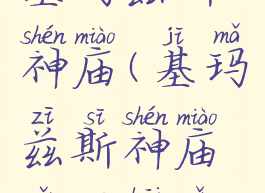 shén miào jī mǎ
神庙(基玛
zī sī shén miào
兹斯神庙